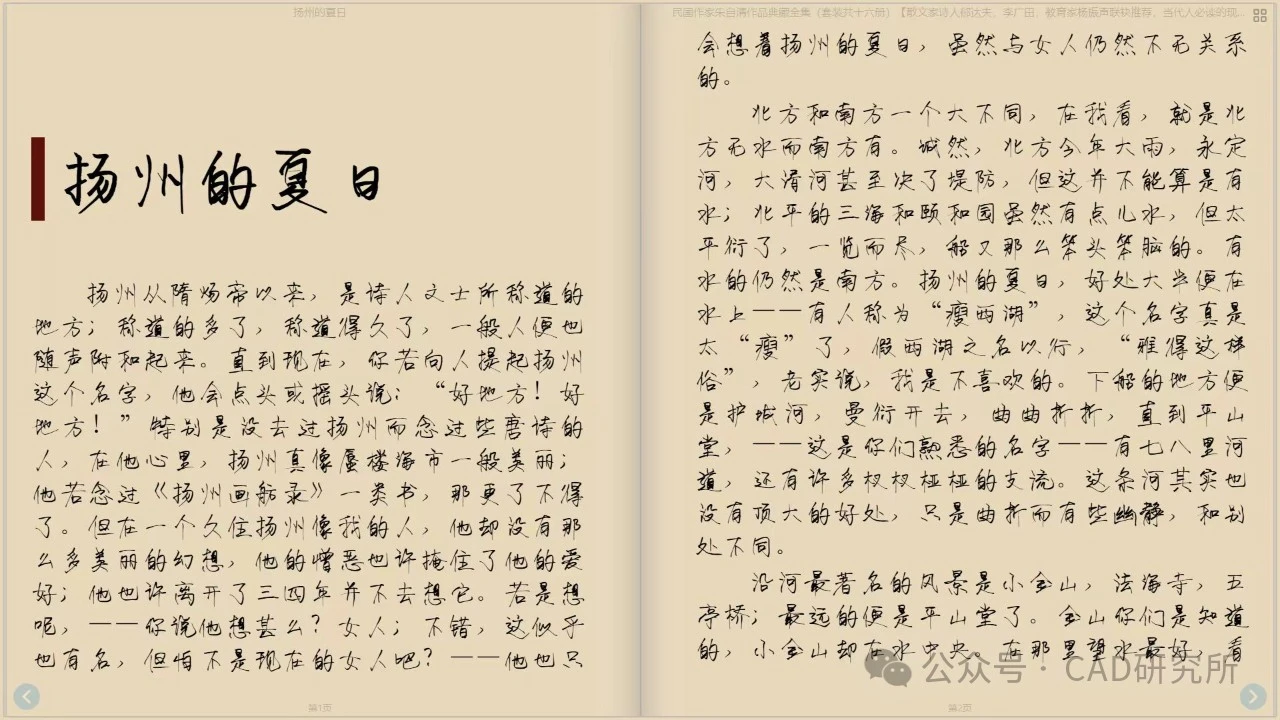 扬州的夏日
扬州的夏日
扬州从隋炀帝以来，是诗人文士所称道的
地方；称道的多了，称道得久了，一般人便也
随声附和起来。直到现在，你若向人提起扬州
这个名字，他会点头或摇头说：“好地方！好
地方！”特别是没去过扬州而念过些唐诗的
人，在他心里，扬州真像蜃楼海市一般美丽；
他若念过《扬州画舫录》一类书，那更了不得
了。但在一个久住扬州像我的人，他却没有那
么多美丽的幻想，他的憎恶也许掩住了他的爱
好；他也许离开了三四年并不去想它。若是想
呢，——你说他想甚么？女人；不错，这似乎
也有名，但怕不是现在的女人吧？——他也只
第1页
民国作家朱自清作品典藏全集（套装共十六册）【散文家诗人郁达夫、李广田、教育家杨振声联袂推荐，当代人必读的现...
会想着扬州的夏日，虽然与女人仍然不无关系
的。
北方和南方一个大不同，在我看，就是北
方无水而南方有。诚然，北方今年大雨，永定
河，大清河甚至决了堤防，但这并不能算是有
水；北平的三海和颐和园虽然有点儿水，但太
平衍了，一览而尽，船又那么笨头笨脑的。有
水的仍然是南方。扬州的夏日，好处大半便在
水上——有人称为“瘦西湖”，这个名字真是
太“瘦”了，假西湖之名以行，“雅得这样
俗”，老实说，我是不喜欢的。下船的地方便
是护城河，曼衍开去，曲曲折折，直到平山
堂，——这是你们熟悉的名字——有七八里河
道，还有许多杈杈桠桠的支流。这条河其实也
没有顶大的好处，只是曲折而有些幽静，和别
处不同。
沿河最著名的风景是小金山，法海寺，五
亭桥；最远的便是平山堂了。金山你们是知道
的，小金山却在水中央。在那里望水最好，看
第2页
公众号·CAD研究所